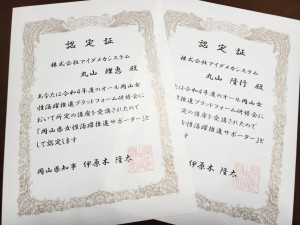 認定証
株式会社アイダメカシステム
丸山 理恵 殿
あなたは令和4年度のオール岡山女
性活躍推進プラットフォーム研修会に
おいて所定の講座を受講されたので
「岡山県女性活躍推進サポーター」と
して認定します
岡山県知事 伊原木 隆太
認定証
株式会社アイダメカシステム
丸山 隆行 殿
は令和4年度のオール岡山女
推進プラットフォーム研修会に
定の講座を受講されたので
女性活躍推進サポーター」と
ます
伊原木 隆太